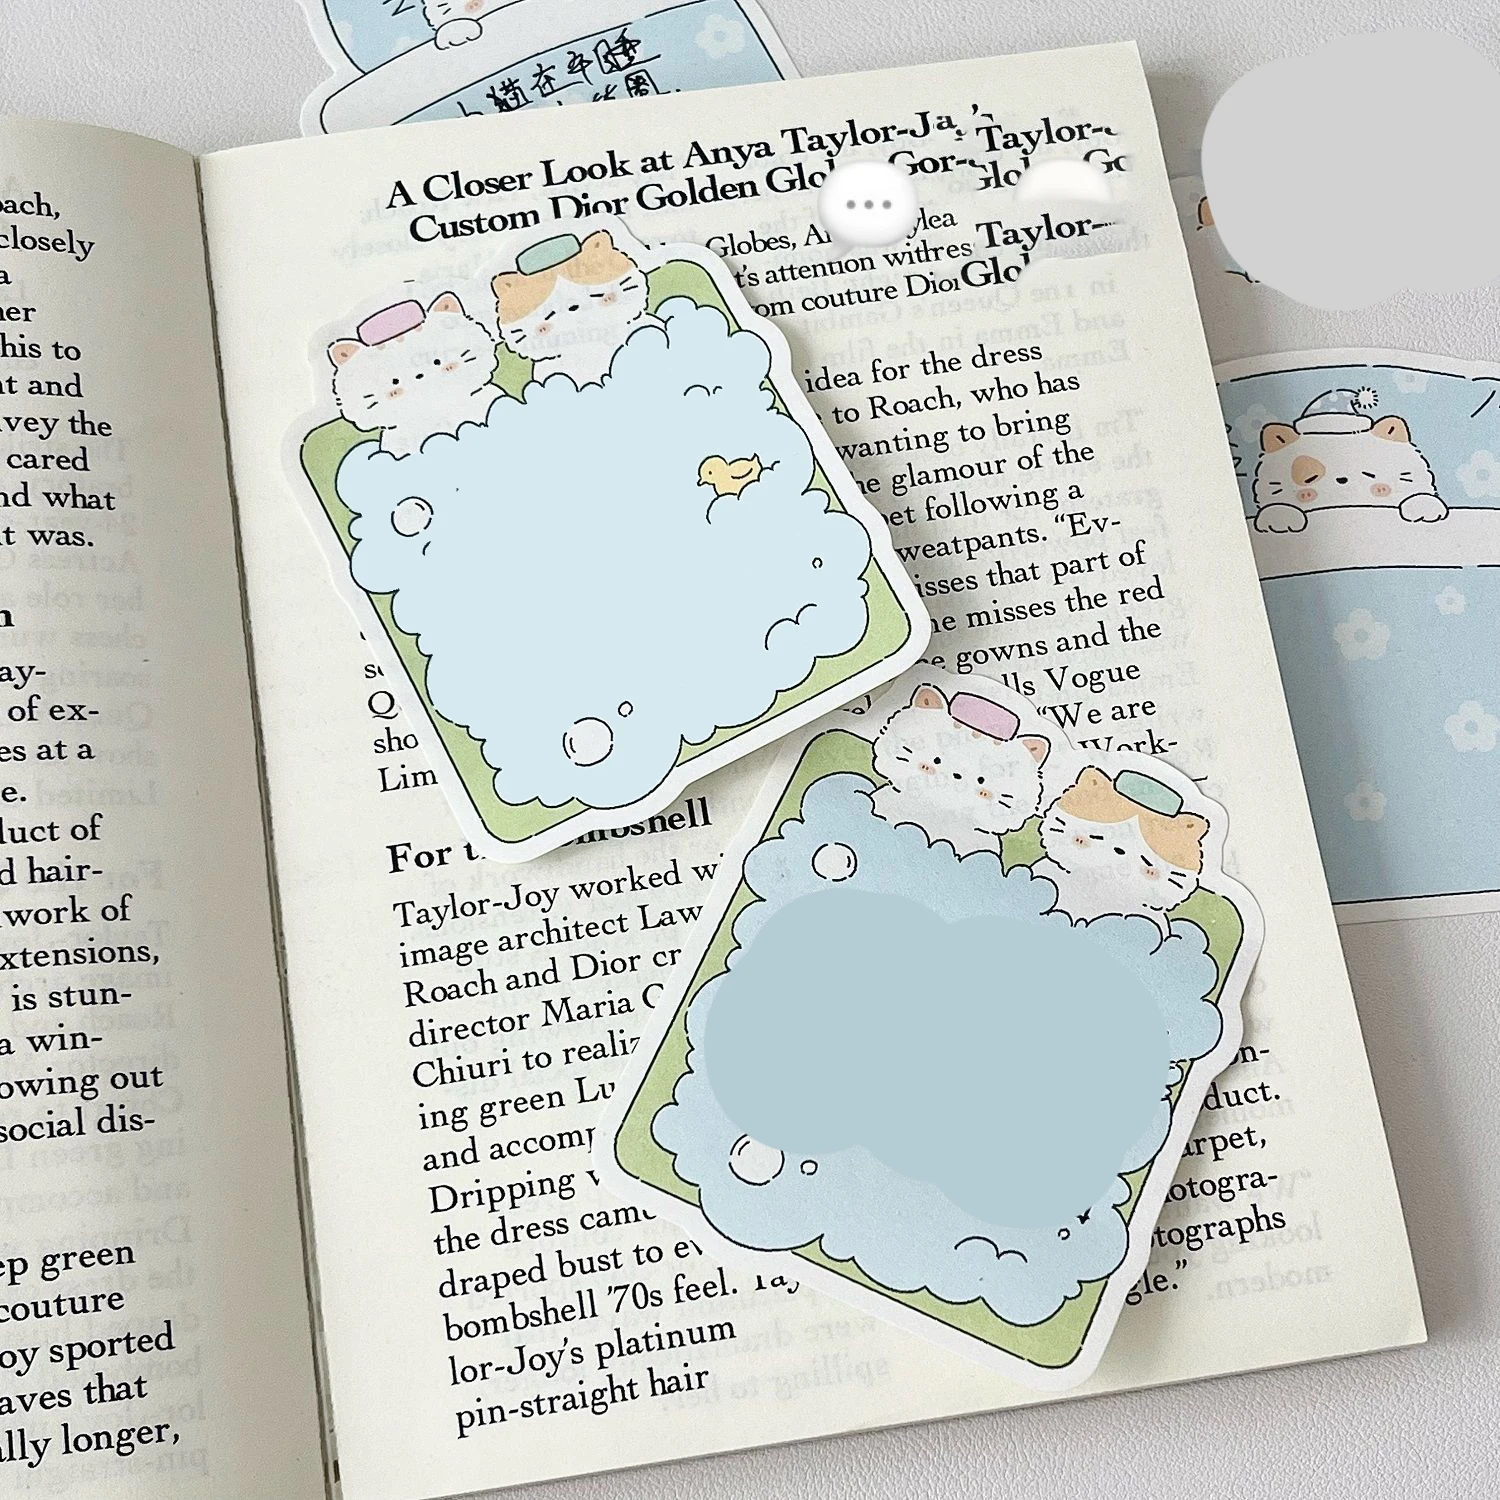 小猫在牛睡
A Closer Look at Anya Taylor-Ja
Custom Dior Golden Glo Gor-
Taylor-
Glo Go
Taylor-
Glo
Globes,
's attention with res
om couture Dior
idea for the dress
to Roach, who has
wanting to bring
he glamour of the
et following a
weatpants. “Ev-
isses that part of
he misses the red
gowns and the
lls Vogue
“We are
Work-
sho
Lim
For t mbshell
Taylor-Joy worked wi
image architect Law
Roach and Dior cr
director Maria C
Chiuri to realiz
ing green Lu
and accomp
Dripping
the dress came
draped bust to ev
bombshell ’70s feel. Tay
lor-Joy’s platinum
pin-straight hair
on-
duct.
arpet,
otogra-
tographs
gle.”
oach,
closely
a
her
his to
nt and
nvey the
cared
nd what
it was.
n
ay-
of ex-
es at a
e.
duct of
d hair-
work of
xtensions,
is stun-
a win-
owing out
social dis-
ep green
couture
oy sported
eaves that
ally longer,